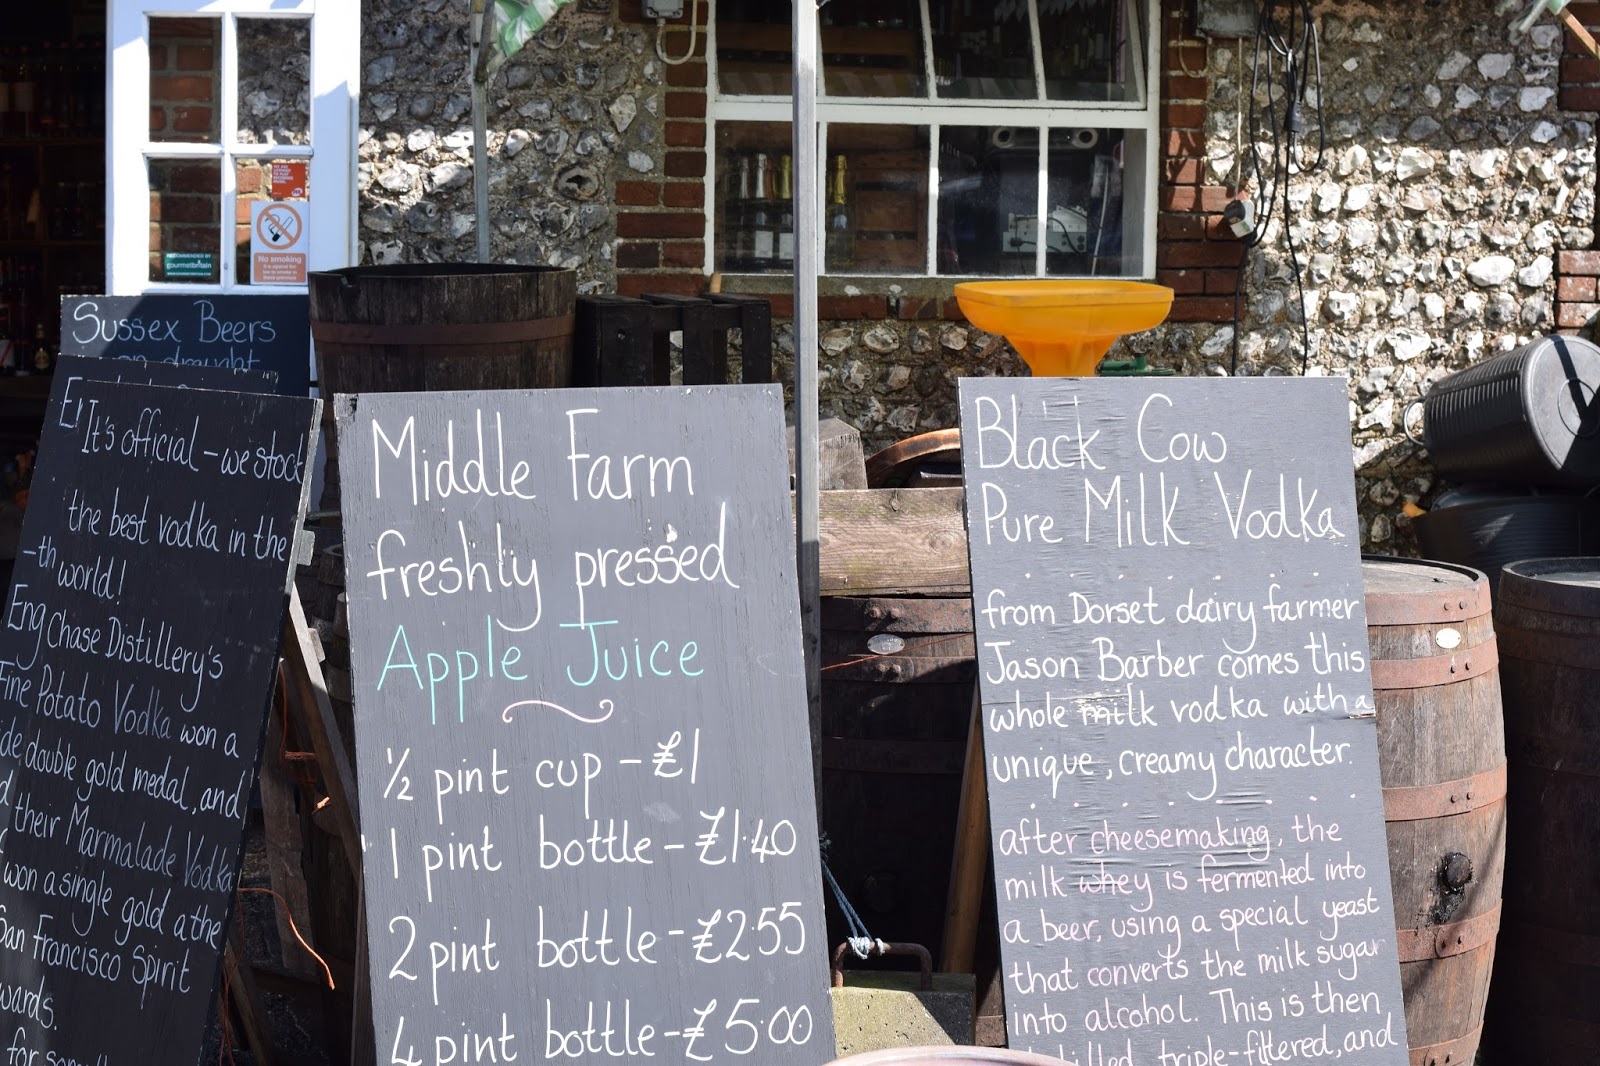 No smoking
RECOMMENDED BY
gourmetbritain
Sussex Beers
on draught
It's official – we stock
the best vodka in the
world!
Chase Distillery's
Fine Potato Vodka won a
double gold medal, and
their Marmalade Vodka
won a single gold at the
San Francisco Spirit
Eng
-th
Middle Farm
freshly pressed
Apple Juice
½ pint cup – £1
1 pint bottle – £1·40
2 pint bottle – £2·55
4 pint bottle – £5·00
Black Cow
Pure Milk Vodka
from Dorset dairy farmer
Jason Barber comes this
whole milk vodka with a
unique, creamy character.
after cheesemaking, the
milk whey is fermented into
a beer, using a special yeast
that converts the milk sugar
into alcohol. This is then
triple-filtered, and